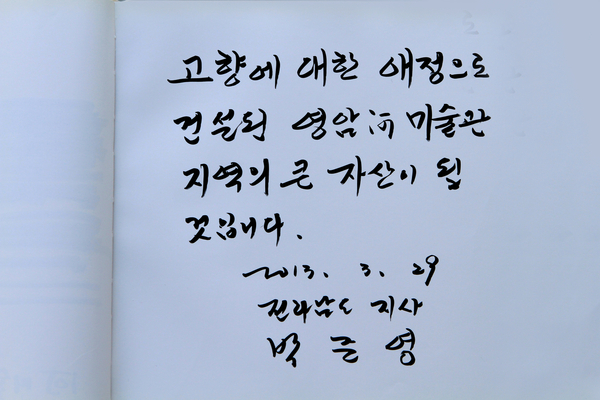 고향에 대한 애정으로
건설된 영암 河 미술관
지역의 큰 자산이 될
것입니다.
2013. 3. 29
전라남도 지사
박 준 영